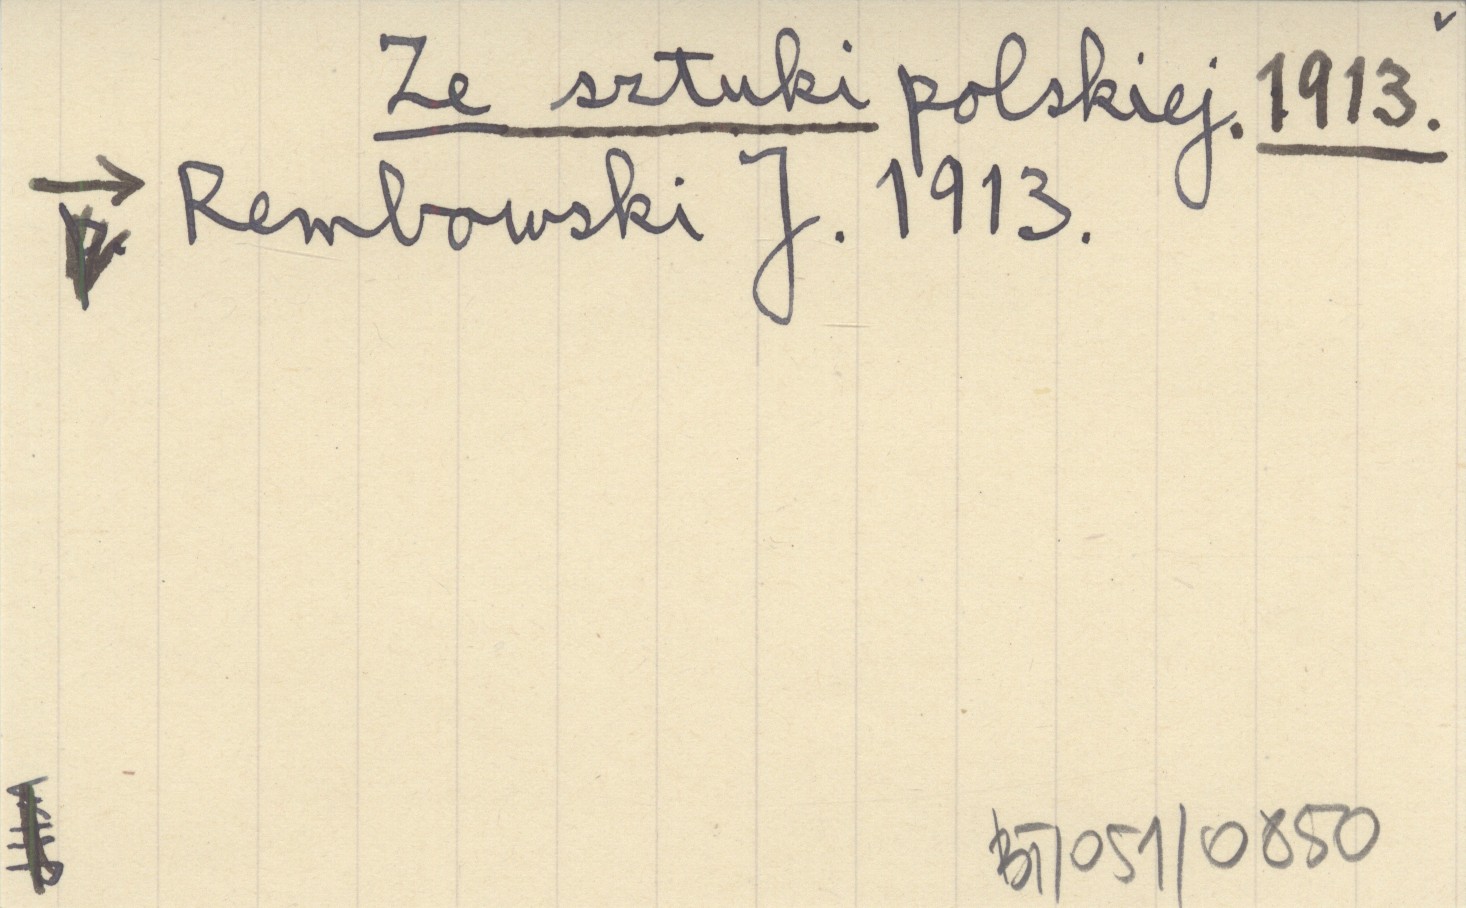 Ze sztuki polskiej. 1913.
→ Rembowski J. 1913.
BT/051/0850